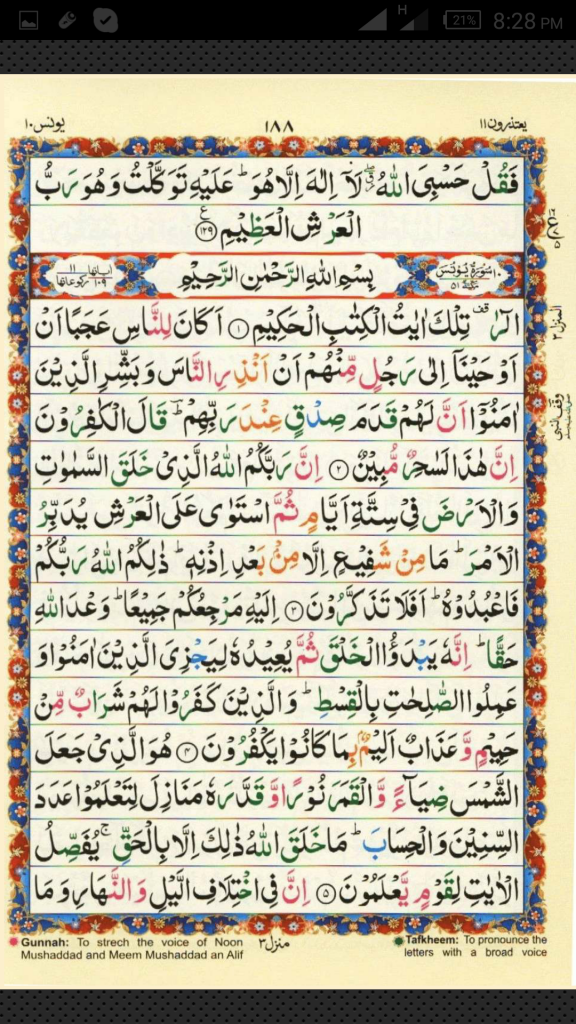 H 21% 8:28 PM
یعتذرون ۱۱
۱۸۸
یونس ۱۰
فَقُلْ حَسْبِیَ اللّٰهُ ۖ٘ لَاۤ اِلٰهَ اِلَّا هُوَ ؕ عَلَیْهِ تَوَكَّلْتُ وَ هُوَ رَبُّ
الْعَرْشِ الْعَظِیْمِ ﴿۱۲۹﴾
۱۰ سُوْرَةُ یُوْنُسَ مَكِّیَّةٌ ۵۱
بِسْمِ اللّٰهِ الرَّحْمٰنِ الرَّحِیْمِ
اٰیاتها ۱۰۹ رکوعاتها ۱۱
الٓرٰ ۫ تِلْكَ اٰیٰتُ الْكِتٰبِ الْحَكِیْمِ ﴿۱﴾ اَكَانَ لِلنَّاسِ عَجَبًا اَنْ
اَوْحَیْنَاۤ اِلٰی رَجُلٍ مِّنْهُمْ اَنْ اَنْذِرِ النَّاسَ وَ بَشِّرِ الَّذِیْنَ
اٰمَنُوْۤا اَنَّ لَهُمْ قَدَمَ صِدْقٍ عِنْدَ رَبِّهِمْ ؕ قَالَ الْكٰفِرُوْنَ
اِنَّ هٰذَا لَسٰحِرٌ مُّبِیْنٌ ﴿۲﴾ اِنَّ رَبَّكُمُ اللّٰهُ الَّذِیْ خَلَقَ السَّمٰوٰتِ
وَ الْاَرْضَ فِیْ سِتَّةِ اَیَّامٍ ثُمَّ اسْتَوٰی عَلَی الْعَرْشِ یُدَبِّرُ
الْاَمْرَ ؕ مَا مِنْ شَفِیْعٍ اِلَّا مِنْۢ بَعْدِ اِذْنِهٖ ؕ ذٰلِكُمُ اللّٰهُ رَبُّكُمْ
فَاعْبُدُوْهُ ؕ اَفَلَا تَذَكَّرُوْنَ ﴿۳﴾ اِلَیْهِ مَرْجِعُكُمْ جَمِیْعًا ؕ وَعْدَ اللّٰهِ
حَقًّا ؕ اِنَّهٗ یَبْدَؤُا الْخَلْقَ ثُمَّ یُعِیْدُهٗ لِیَجْزِیَ الَّذِیْنَ اٰمَنُوْا وَ
عَمِلُوا الصّٰلِحٰتِ بِالْقِسْطِ ؕ وَ الَّذِیْنَ كَفَرُوْا لَهُمْ شَرَابٌ مِّنْ
حَمِیْمٍ وَّ عَذَابٌ اَلِیْمٌۢ بِمَا كَانُوْا یَكْفُرُوْنَ ﴿۴﴾ هُوَ الَّذِیْ جَعَلَ
الشَّمْسَ ضِیَآءً وَّ الْقَمَرَ نُوْرًا وَّ قَدَّرَهٗ مَنَازِلَ لِتَعْلَمُوْا عَدَدَ
السِّنِیْنَ وَ الْحِسَابَ ؕ مَا خَلَقَ اللّٰهُ ذٰلِكَ اِلَّا بِالْحَقِّ ۚ یُفَصِّلُ
الْاٰیٰتِ لِقَوْمٍ یَّعْلَمُوْنَ ﴿۵﴾ اِنَّ فِی اخْتِلَافِ الَّیْلِ وَ النَّهَارِ وَ مَا
المنزل ۳
منزل ۳
Gunnah: To strech the voice of Noon
Mushaddad and Meem Mushaddad an Alif
Tafkheem: To pronounce the
letters with a broad voice